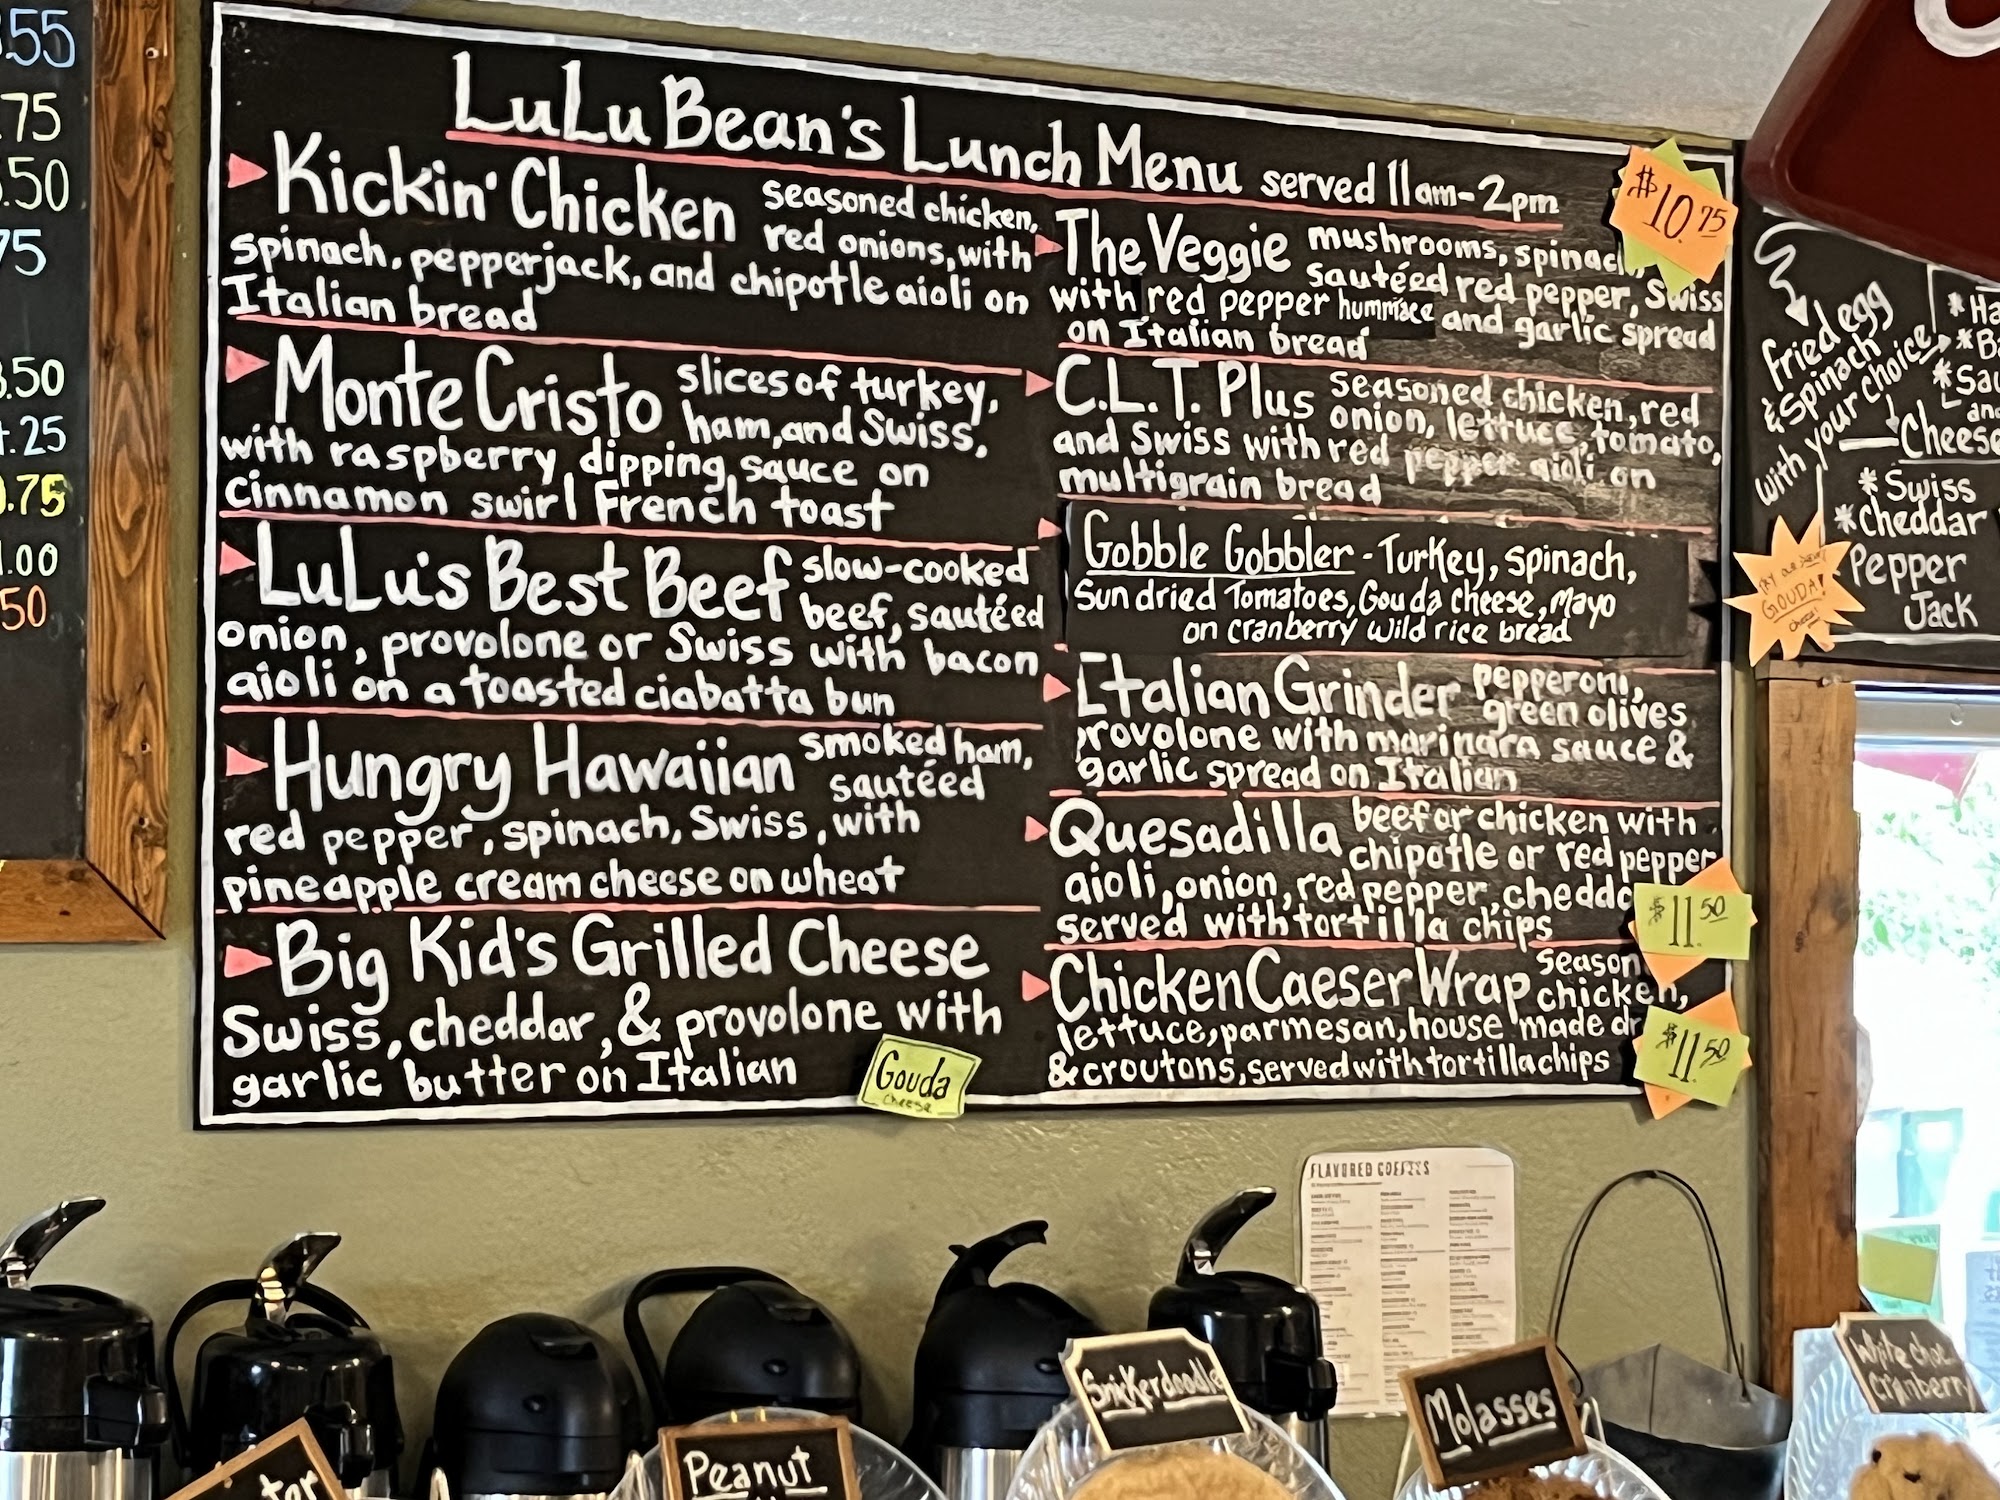 .55
.75
.50
75
.50
.25
.75
.00
50
LuLu Bean's Lunch Menu served 11am-2pm
$10.75
Kickin' Chicken seasoned chicken,
red onions, with
spinach, pepperjack, and chipotle aioli on
Italian bread
Monte Cristo slices of turkey,
ham, and Swiss,
with raspberry dipping sauce on
cinnamon swirl French toast
LuLu's Best Beef slow-cooked
beef, sautéed
onion, provolone or Swiss with bacon
aioli on a toasted ciabatta bun
Hungry Hawaiian smoked ham,
sautéed
red pepper, spinach, Swiss, with
pineapple cream cheese on wheat
Big Kid's Grilled Cheese
Swiss, cheddar, & provolone with
garlic butter on Italian
Gouda
cheese
The Veggie mushrooms, spinac
sautéed red pepper, Swiss
with red pepper and garlic spread
on Italian bread
C.L.T. Plus seasoned chicken, red
onion, lettuce, tomato,
and Swiss with red pepper aioli on
multigrain bread
Gobble Gobbler - Turkey, spinach,
Sundried Tomatoes, Gouda cheese, Mayo
on cranberry wild rice bread
Italian Grinder pepperoni,
green olives
provolone with marinara sauce &
garlic spread on Italian
Quesadilla beef or chicken with
chipotle or red pepper
aioli, onion, red pepper, chedda
served with tortilla chips
$11.50
Chicken Caeser Wrap season
chicken,
lettuce, parmesan, house made dr
& croutons, served with tortilla chips
$11.50
Fried egg
& Spinach
with your choice
* Ha
* Ba
* Sau
and
Cheese
* Swiss
* Cheddar
Pepper
Jack
GOUDA!
cheese!
FLAVORED COFFEES
Peanut
Snickerdoodle
Molasses
White choc
Cranberry